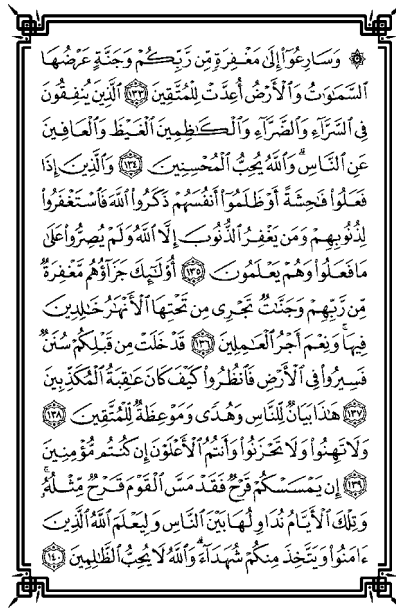 ۞ وَسَارِعُوٓا۟ إِلَىٰ مَغْفِرَةٍ مِّن رَّبِّكُمْ وَجَنَّةٍ عَرْضُهَا
ٱلسَّمَـٰوَٰتُ وَٱلْأَرْضُ أُعِدَّتْ لِلْمُتَّقِينَ ١٣٣ ٱلَّذِينَ يُنفِقُونَ
فِى ٱلسَّرَّآءِ وَٱلضَّرَّآءِ وَٱلْكَـٰظِمِينَ ٱلْغَيْظَ وَٱلْعَافِينَ
عَنِ ٱلنَّاسِ ۗ وَٱللَّهُ يُحِبُّ ٱلْمُحْسِنِينَ ١٣٤ وَٱلَّذِينَ إِذَا
فَعَلُوا۟ فَـٰحِشَةً أَوْ ظَلَمُوٓا۟ أَنفُسَهُمْ ذَكَرُوا۟ ٱللَّهَ فَٱسْتَغْفَرُوا۟
لِذُنُوبِهِمْ وَمَن يَغْفِرُ ٱلذُّنُوبَ إِلَّا ٱللَّهُ وَلَمْ يُصِرُّوا۟ عَلَىٰ
مَا فَعَلُوا۟ وَهُمْ يَعْلَمُونَ ١٣٥ أُو۟لَـٰٓئِكَ جَزَآؤُهُم مَّغْفِرَةٌ
مِّن رَّبِّهِمْ وَجَنَّـٰتٌ تَجْرِى مِن تَحْتِهَا ٱلْأَنْهَـٰرُ خَـٰلِدِينَ
فِيهَا ۚ وَنِعْمَ أَجْرُ ٱلْعَـٰمِلِينَ ١٣٦ قَدْ خَلَتْ مِن قَبْلِكُمْ سُنَنٌ
فَسِيرُوا۟ فِى ٱلْأَرْضِ فَٱنظُرُوا۟ كَيْفَ كَانَ عَـٰقِبَةُ ٱلْمُكَذِّبِينَ
١٣٧ هَـٰذَا بَيَانٌ لِّلنَّاسِ وَهُدًى وَمَوْعِظَةٌ لِّلْمُتَّقِينَ ١٣٨
وَلَا تَهِنُوا۟ وَلَا تَحْزَنُوا۟ وَأَنتُمُ ٱلْأَعْلَوْنَ إِن كُنتُم مُّؤْمِنِينَ
١٣٩ إِن يَمْسَسْكُمْ قَرْحٌ فَقَدْ مَسَّ ٱلْقَوْمَ قَرْحٌ مِّثْلُهُۥ ۚ
وَتِلْكَ ٱلْأَيَّامُ نُدَاوِلُهَا بَيْنَ ٱلنَّاسِ وَلِيَعْلَمَ ٱللَّهُ ٱلَّذِينَ
ءَامَنُوا۟ وَيَتَّخِذَ مِنكُمْ شُهَدَآءَ ۗ وَٱللَّهُ لَا يُحِبُّ ٱلظَّـٰلِمِينَ ١٤٠